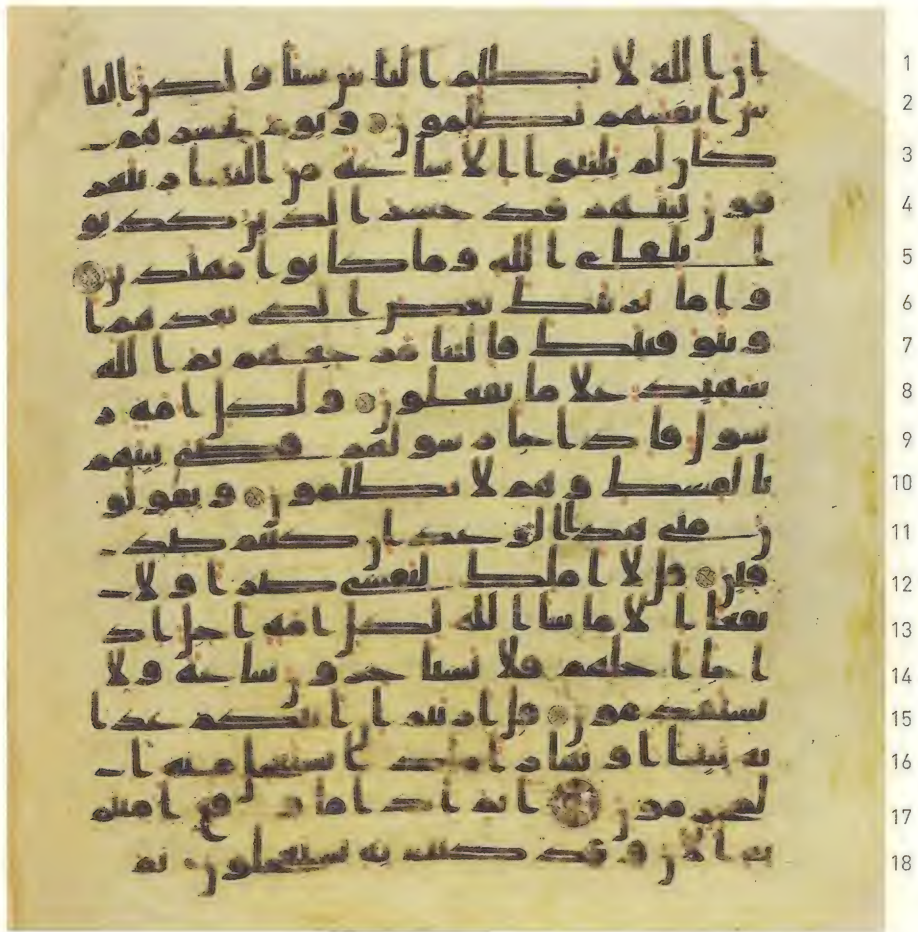 ان الله لا يظلم الناس شيا ولكن النا
س انفسهم يظلمون ويوم يحشرهم
كان لم يلبثوا الا ساعة من النهار يتعر
فون بينهم قد خسر الذين كذبو
ا بلقاء الله وما كانوا مهتدين
واما نرينك بعض الذي نعدهم ا
و نتوفينك فالينا مرجعهم ثم الله
شهيد علا ما يفعلون ولكل امة ر
سول فاذا جا رسولهم قضي بينهم
بالقسط وهم لا يظلمون ويقولو
ن متي هذا الوعد ان كنتم صد
قين قل لا املك لنفسي ضرا ولا
نفعا الا ما شا الله لكل امة اجل اذ
ا جا اجلهم فلا يستاخرون ساعة ولا
يستقدمون قل اريتم ان اتيكم عذا
به بيتا او نهارا ماذا يستعجل منه ا
لمجرمون اثم اذا ما وقع امنتم
به الن وقد كنتم به تستعجلون ثم
1
2
3
4
5
6
7
8
9
10
11
12
13
14
15
16
17
18